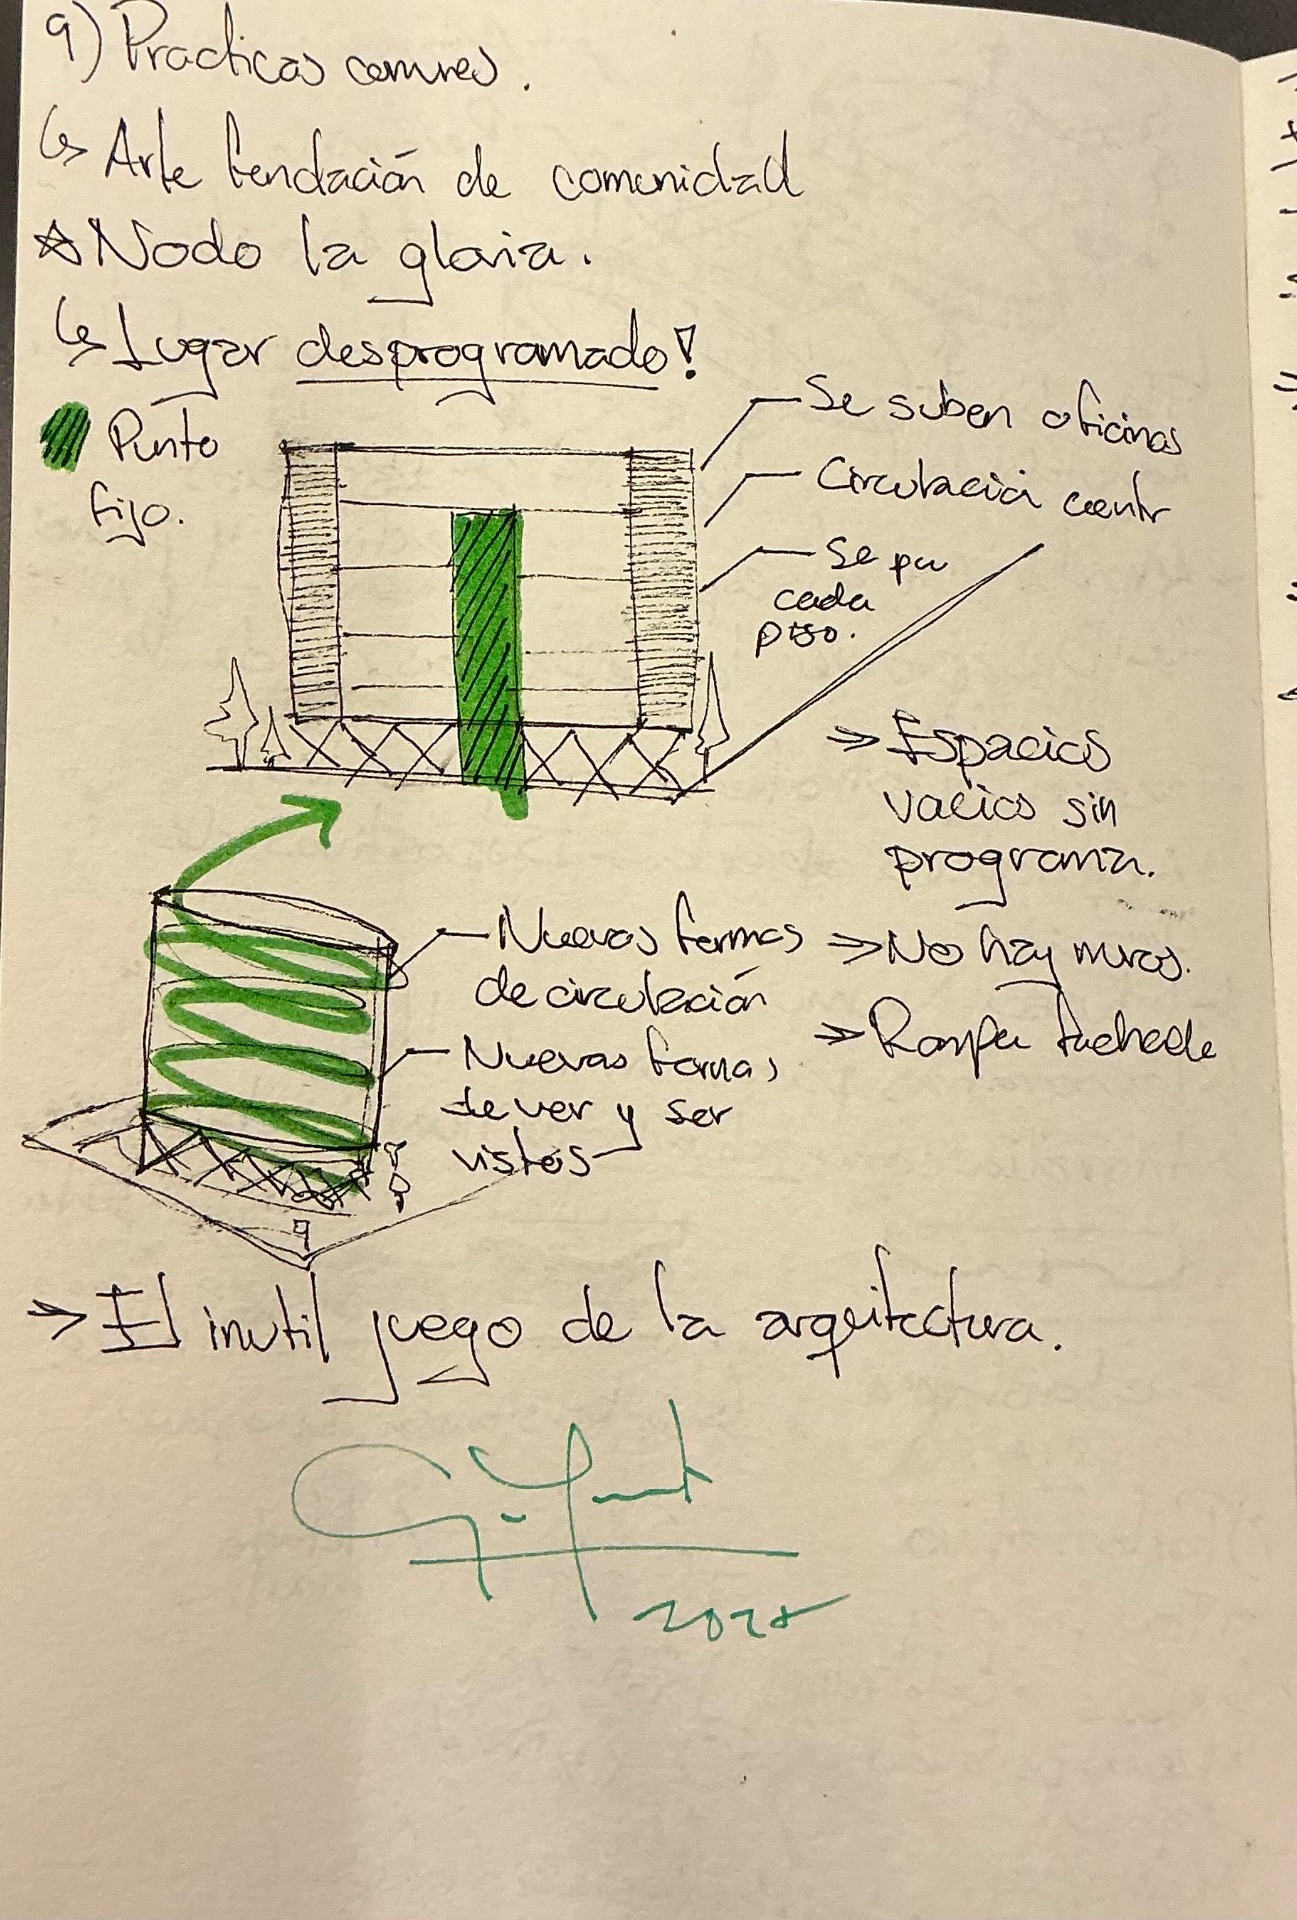 9) Practicas comunes.
↳ Arte fundación de comunidad
☆ Nodo la gloria.
↳ Lugar desprogramado!
Punto
fijo.
Se suben oficinas
Circulación centr
Se pu
cada
piso.
⇒ Espacios
vacios sin
programa.
⇒ No hay muros.
⇒ Romper
Nuevas formas
de circulación
Nuevas formas
de ver y ser
vistos
⇒ El inutil juego de la arquitectura.